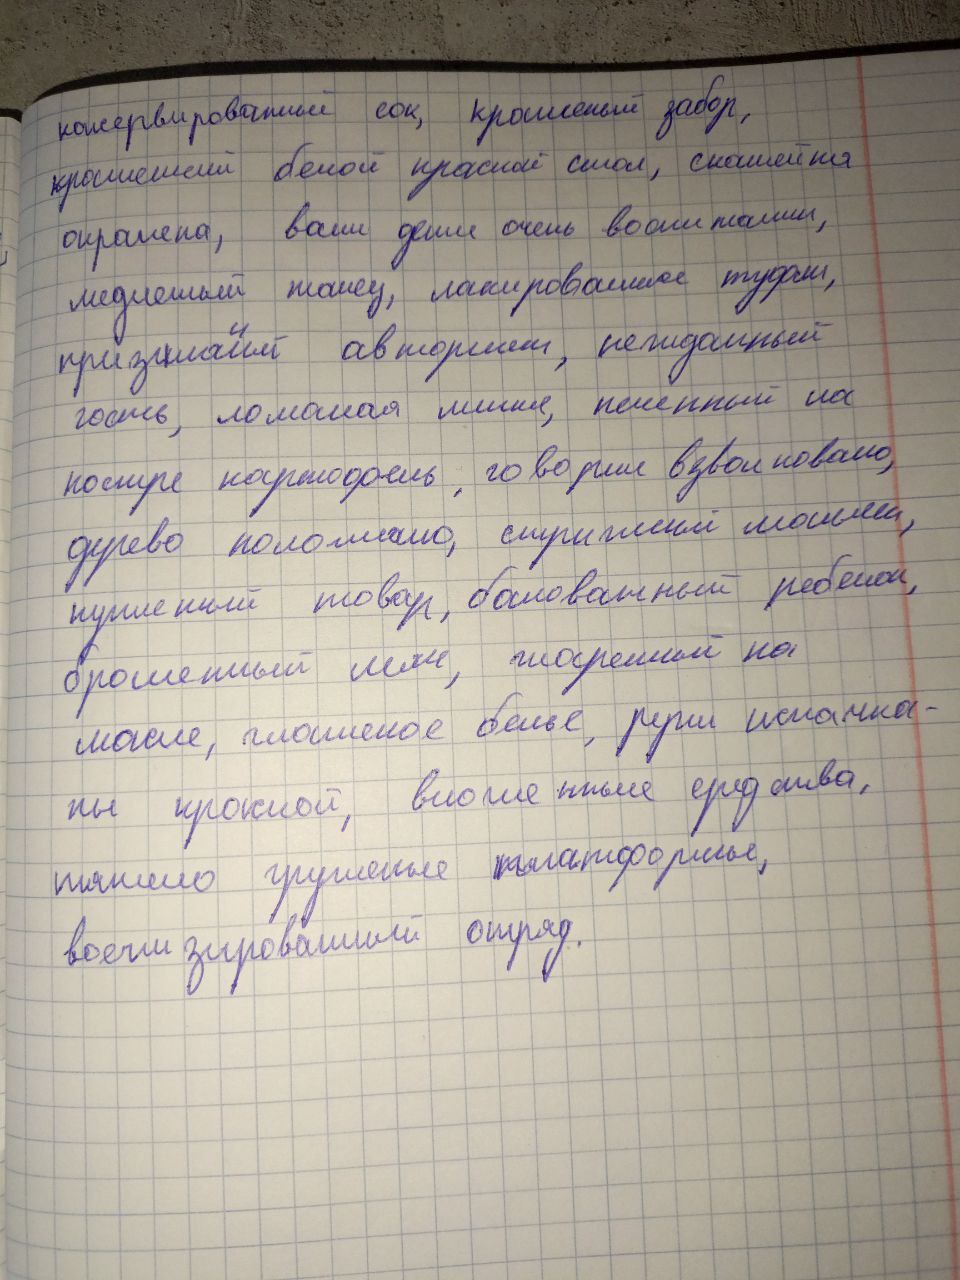 консервированный сок, крашеный забор,
крашенный белой краской стол, скамейка
окрашена, ваши дети очень воспитаны,
медленный танец, лакированные туфли,
признанный авторитет, нежданный
гость, ломаная линия, печенный на
костре картофель, говорил взволновано,
дерево поломано, стриженый мальчик,
купленный товар, балованный ребенок,
брошенный мяч, жаренный на
масле, глаженое белье, руки испачка-
ны краской, вложенные средства,
тяжело груженые платформы,
военизированный отряд.